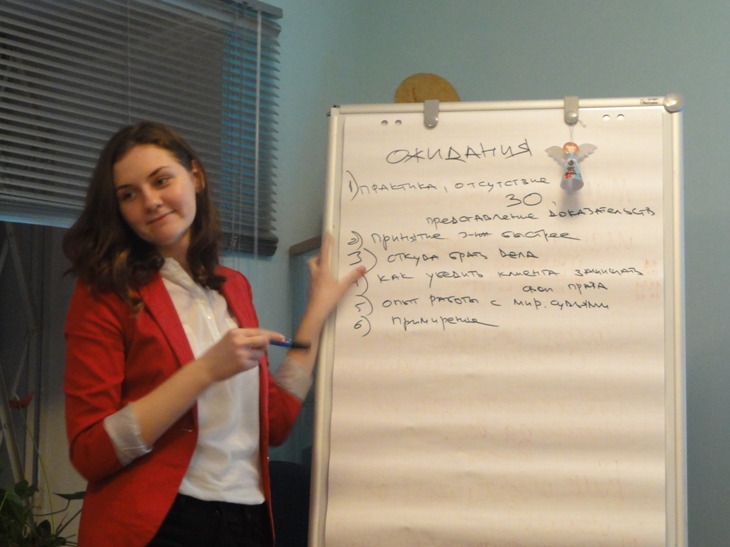 ОЖИДАНИЯ
1) ПРАКТИКА, отсутствие
ЗО,
представление доказательств
2) принятие з-на быстрее
3) откуда брать дела
4) как убедить клиента защищать
свои права
5) опыт работы с мир. судьями
6) примирение